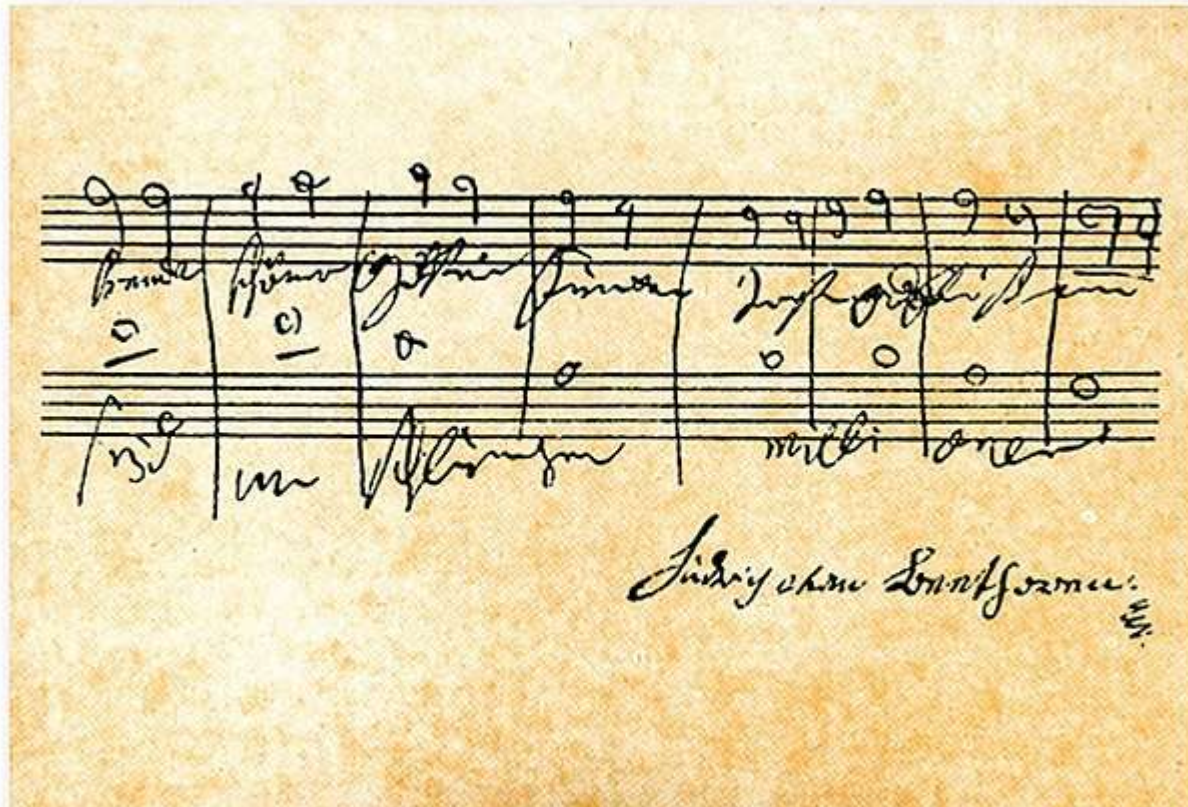 Freude schöner Götter Funken Tochter aus Elisium
Seid um schlungen milli onen
Ludwig van Beethoven